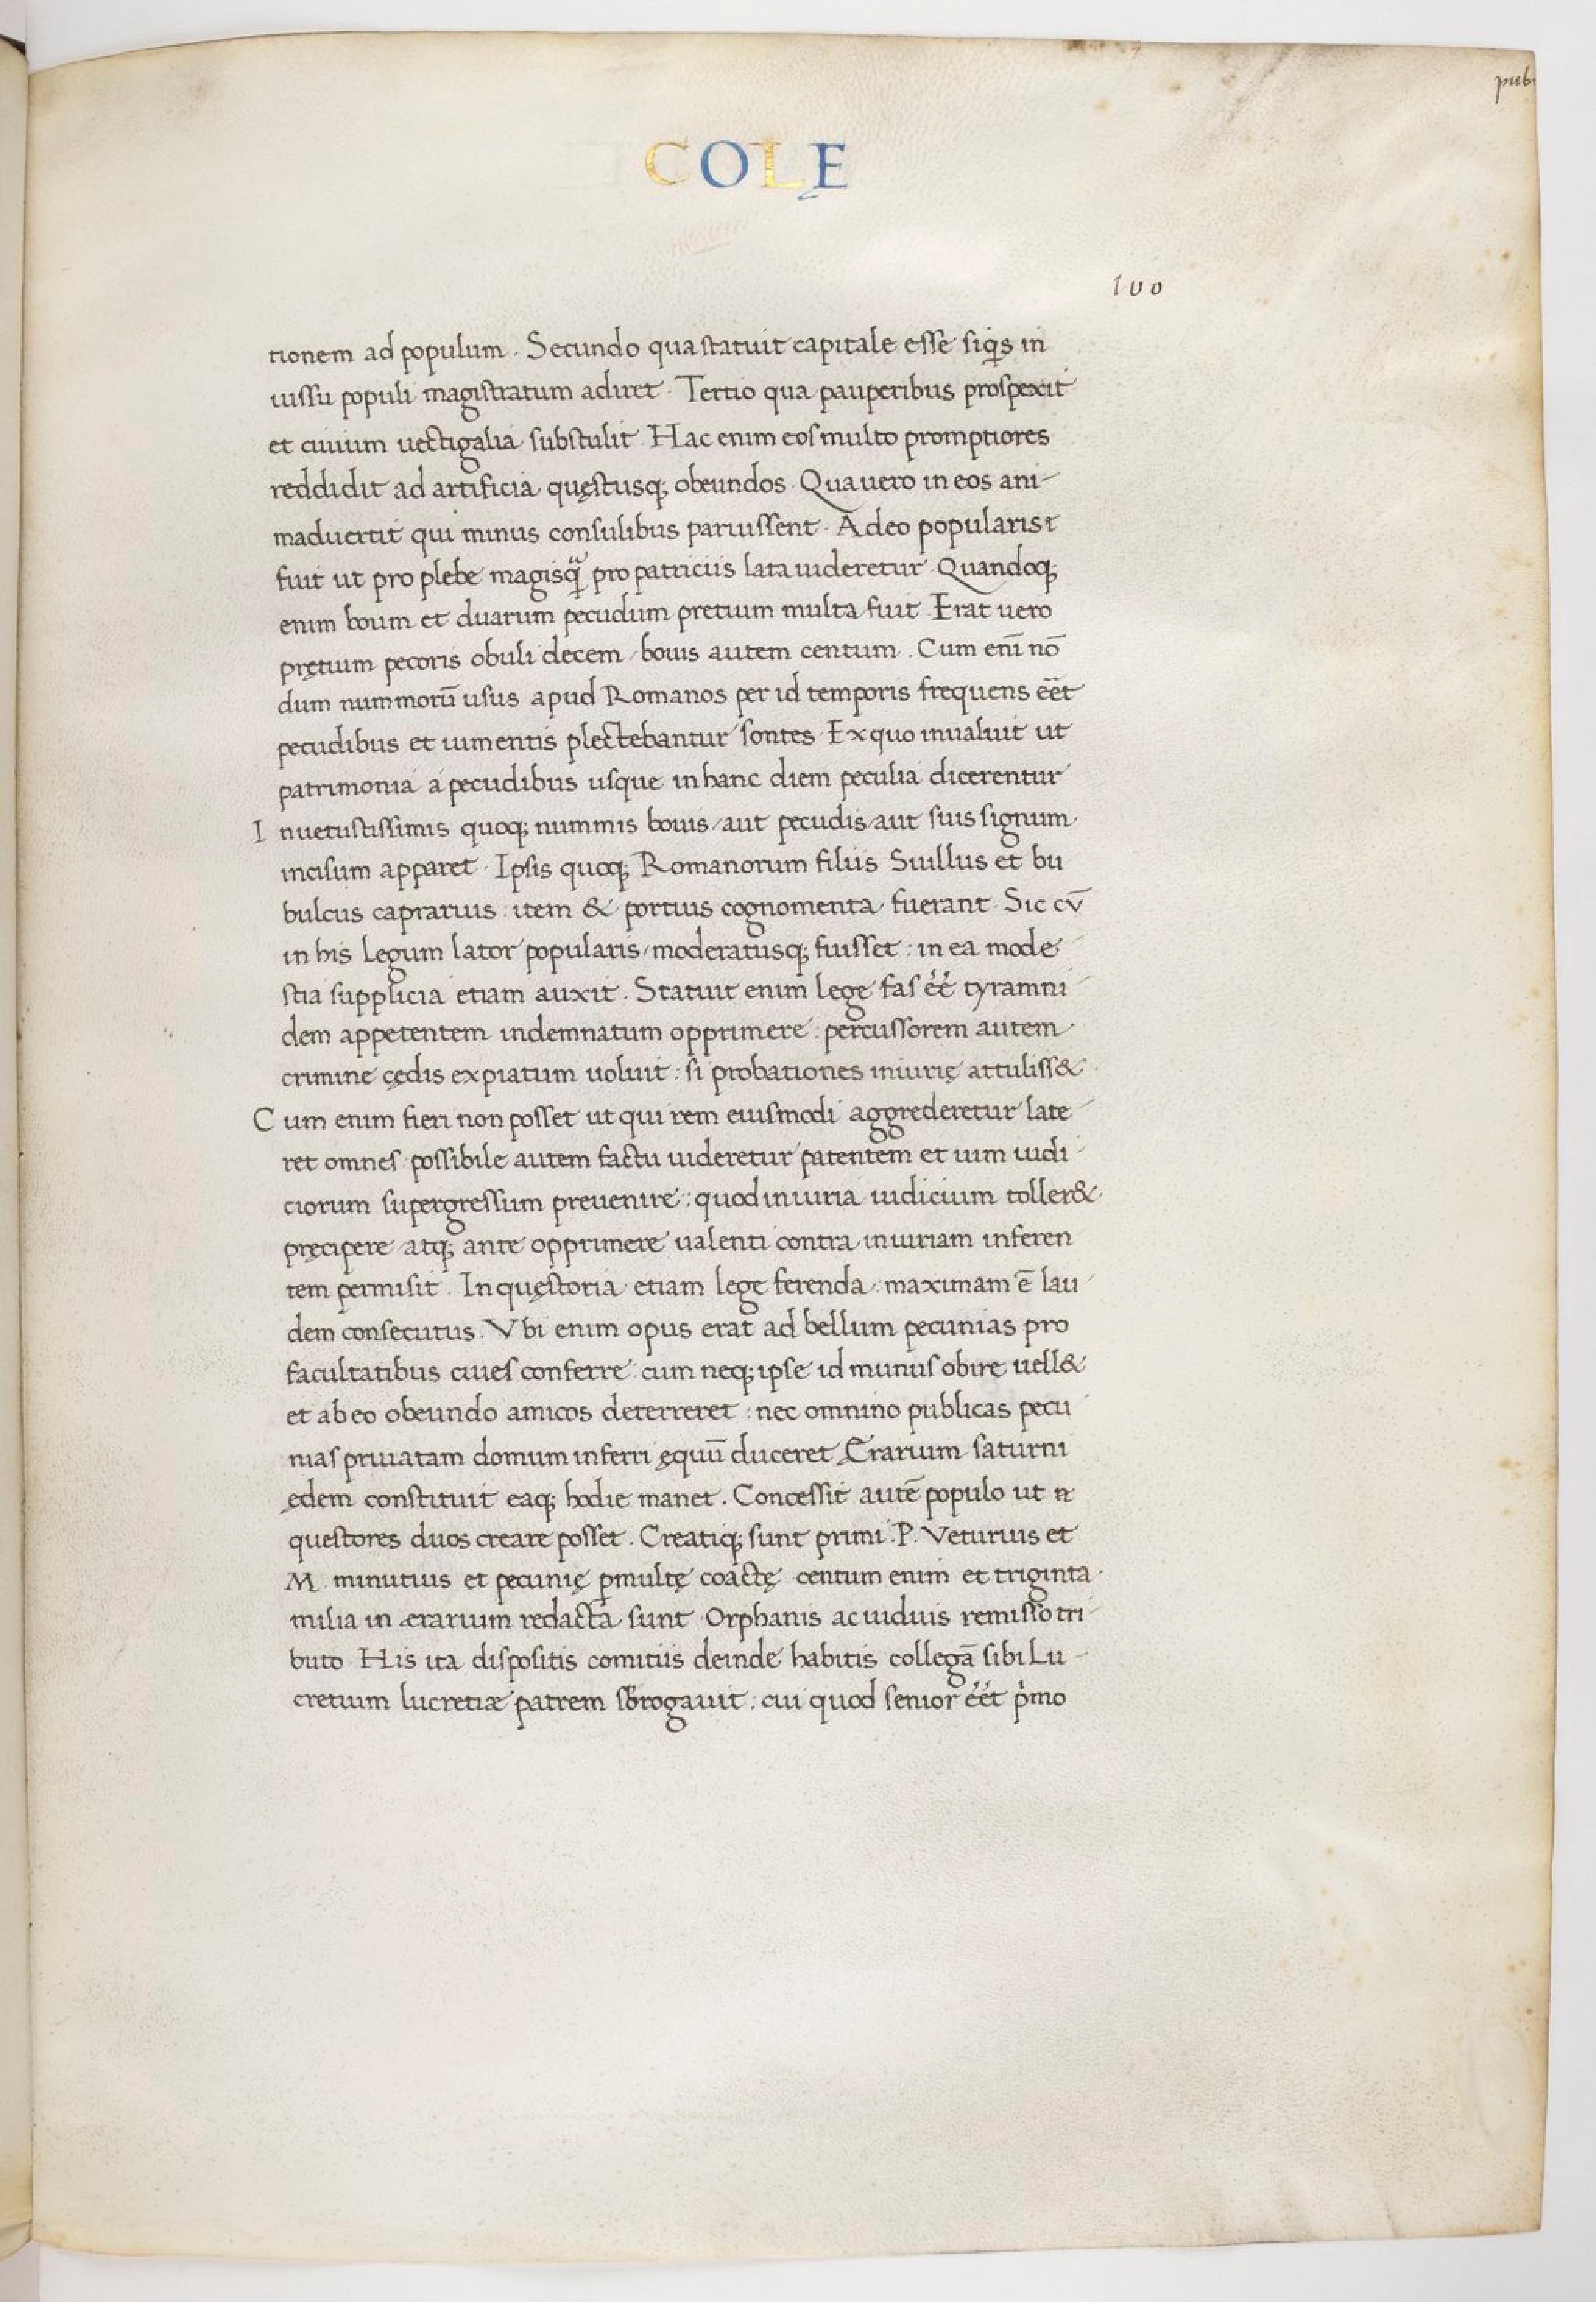 pub
COLĘ
100
tionem ad populum . Secundo qua statuit capitale esse siq̢s in
iussu populi magistratum adiret . Tertio qua pauperibus prospexit
et ciuium uectigalia substulit . Hac enim eos multo promptiores
reddidit ad artificia quęstusq; obeundos . Qua uero in eos ani-
maduertit qui minus consulibus paruissent . Adeo popularis
fuit ut pro plebe magisq̃ pro patriciis lata uideretur . Quandoq;
enim boum et duarum pecudum pretium multa fuit . Erat uero
prętium pecoris obuli decem / bouis autem centum . Cum enī nō
dum nummorū usus apud Romanos per id temporis frequens eēt
pecudibus et iumentis plectebantur sontes . Ex quo inualuit ut
patrimonia a pecudibus usque in hanc diem peculia dicerentur
I nuetustissimis quoq; nummis bouis / aut pecudis / aut suis signum
incisum apparet . Ipsis quoq; Romanorum filiis Suillus et bu
bulcus caprarius : item & portius cognomenta fuerant . Sic cū
in his legum lator popularis / moderatusq; fuisset : in ea mode-
stia supplicia etiam auxit . Statuit enim lege fas eē tyramni-
dem appetentem indemnatum opprimere : percussorem autem
crimine cędis expiatum uoluit : si probationes iniurię attuliss&
C um enim fieri non posset ut qui rem eiusmodi aggrederetur late-
ret omnes possibile autem factu uideretur patentem et uim iudi-
ciorum supergressum preuenire : quod iniuria iudicium toller&
pręcipere atq; ante opprimere ualenti contra iniuriam inferen
tem permisit . In quęstoria etiam lege ferenda : maximam ē lau-
dem consecutus . Vbi enim opus erat ad bellum pecunias pro
facultatibus ciues conferre cum neq; ipse id munus obire uell&
et ab eo obeundo amicos deterreret : nec omnino publicas pecu
nias priuatam domum inferri ęquū duceret Ęrarium saturni
ędem constituit eaq; hodie manet . Concessit autē populo ut
questores duos creare posset . Creatiq; sunt primi . P. Veturius et
M . minutius et pecunię ꝑmultę coactę centum enim et triginta
milia in ærarium redacta sunt Orphanis ac uiduis remisso tri-
buto . His ita dispositis comitiis deinde habitis collegā sibi Lu-
cretium lucretiæ patrem sbrogauit : cui quod senior eēt pͥmo